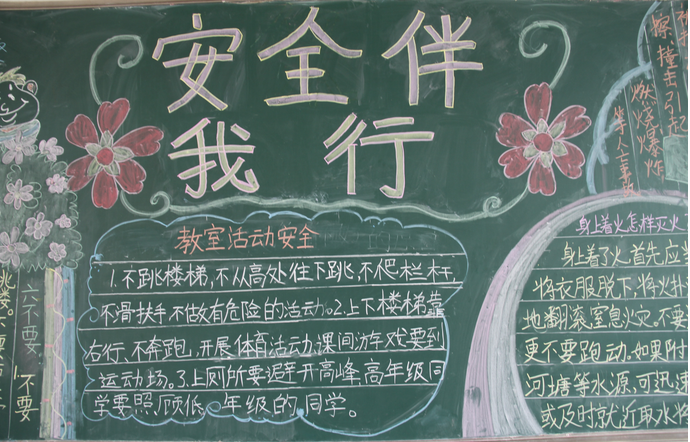 安全伴
我行
教室活动安全
1.不跳楼梯,不从高处往下跳,不爬栏杆,
不骨扶手不做有危险的活动。2.上下楼梯靠
右行、不奔跑,开展体育活动、课间游戏要到
运动场。3.上厕所要避开高峰,高年级同
学要照顾低年级的同学。
撞击引起
燃烧爆炸
身上着火怎样灭火
身上着了火首先应当
将衣服脱下,将火扑
地翻滚窒息火灾。不要
更不要跑动。如果附
河塘等水源,可迅速
或及时就近取水将
六不要
1.不要